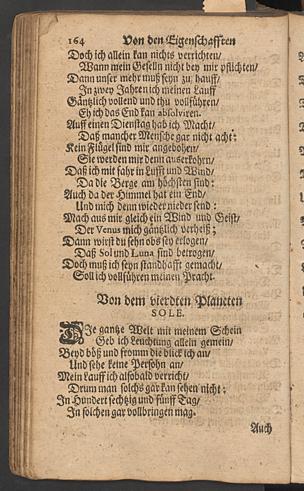 164 Von den Eigenschafften
Doch ich allein kan nichts verrichten/
Wann mein Geselln nicht bey mir pflichten/
Dann unser mehr muß seyn zu hauff/
In zwey Jahren ich meinen Lauff
Gäntzlich vollend und thu vollführen/
Eh ich das End kan absolviren.
Auff einen Dienstag hab ich Macht/
Daß mancher Mensche gar nicht acht:
Kein Flügel sind mir angebohrn/
Sie werden mir denn auserkohrn/
Daß ich mit fahr in Lufft und Wind/
Da die Berge am höchsten sind:
Auch da der Himmel hat ein End/
Und mich denn wieder nieder send:
Mach aus mir gleich ein Wind und Geist/
Der Venus mich gäntzlich verheiß;
Dann wirst du sehn obs sey erlogen/
Daß Sol und Luna sind betrogen/
Doch muß ich seyn standhafft gemacht/
Soll ich vollführen meinen Pracht.
Von dem vierdten Planeten
SOLE.
DIe gantze Welt mit meinem Schein
Geb ich Leuchtung allein gemein/
Beyd böß und fromm die blick ich an/
Und sehe keine Persohn an/
Mein Lauff ich alsobald verricht/
Drum man solchs gar kan sehen nicht:
In Hundert sechtzig und fünff Tag/
In solchen gar vollbringen mag.
Auch